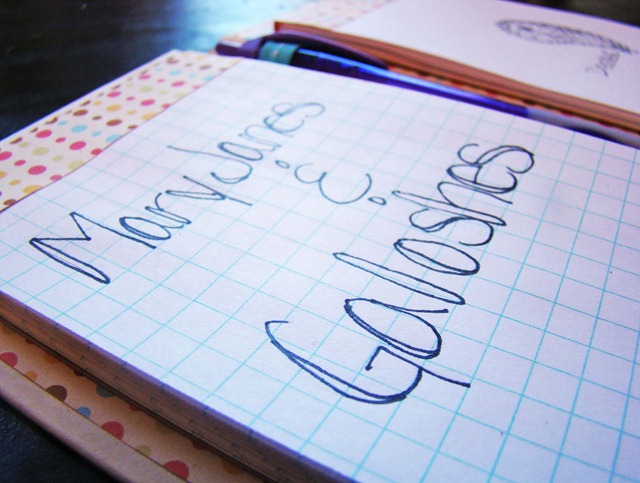 Mary Janes
&
Galoshes